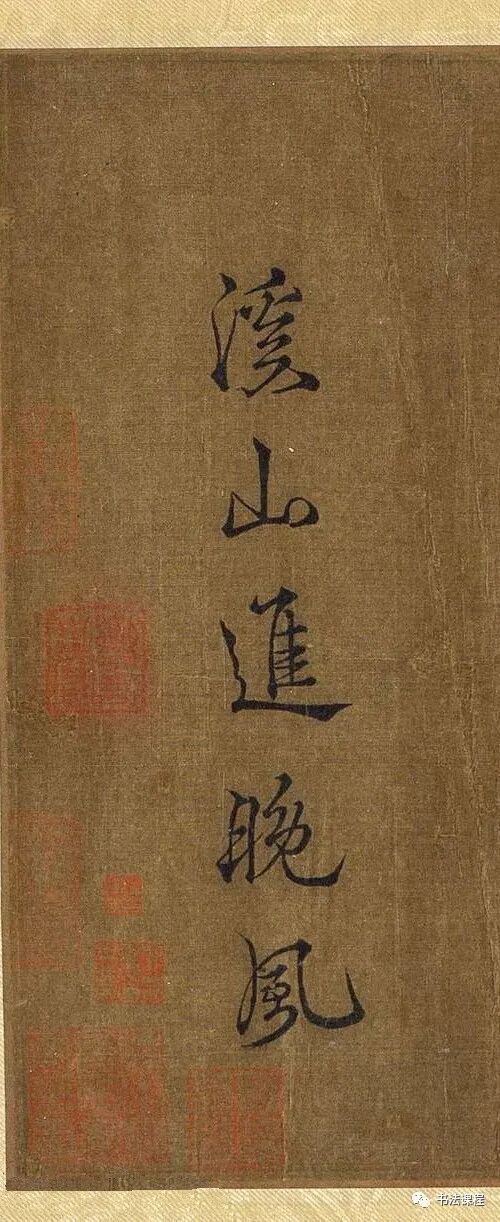 溪山進晚風
书法课程